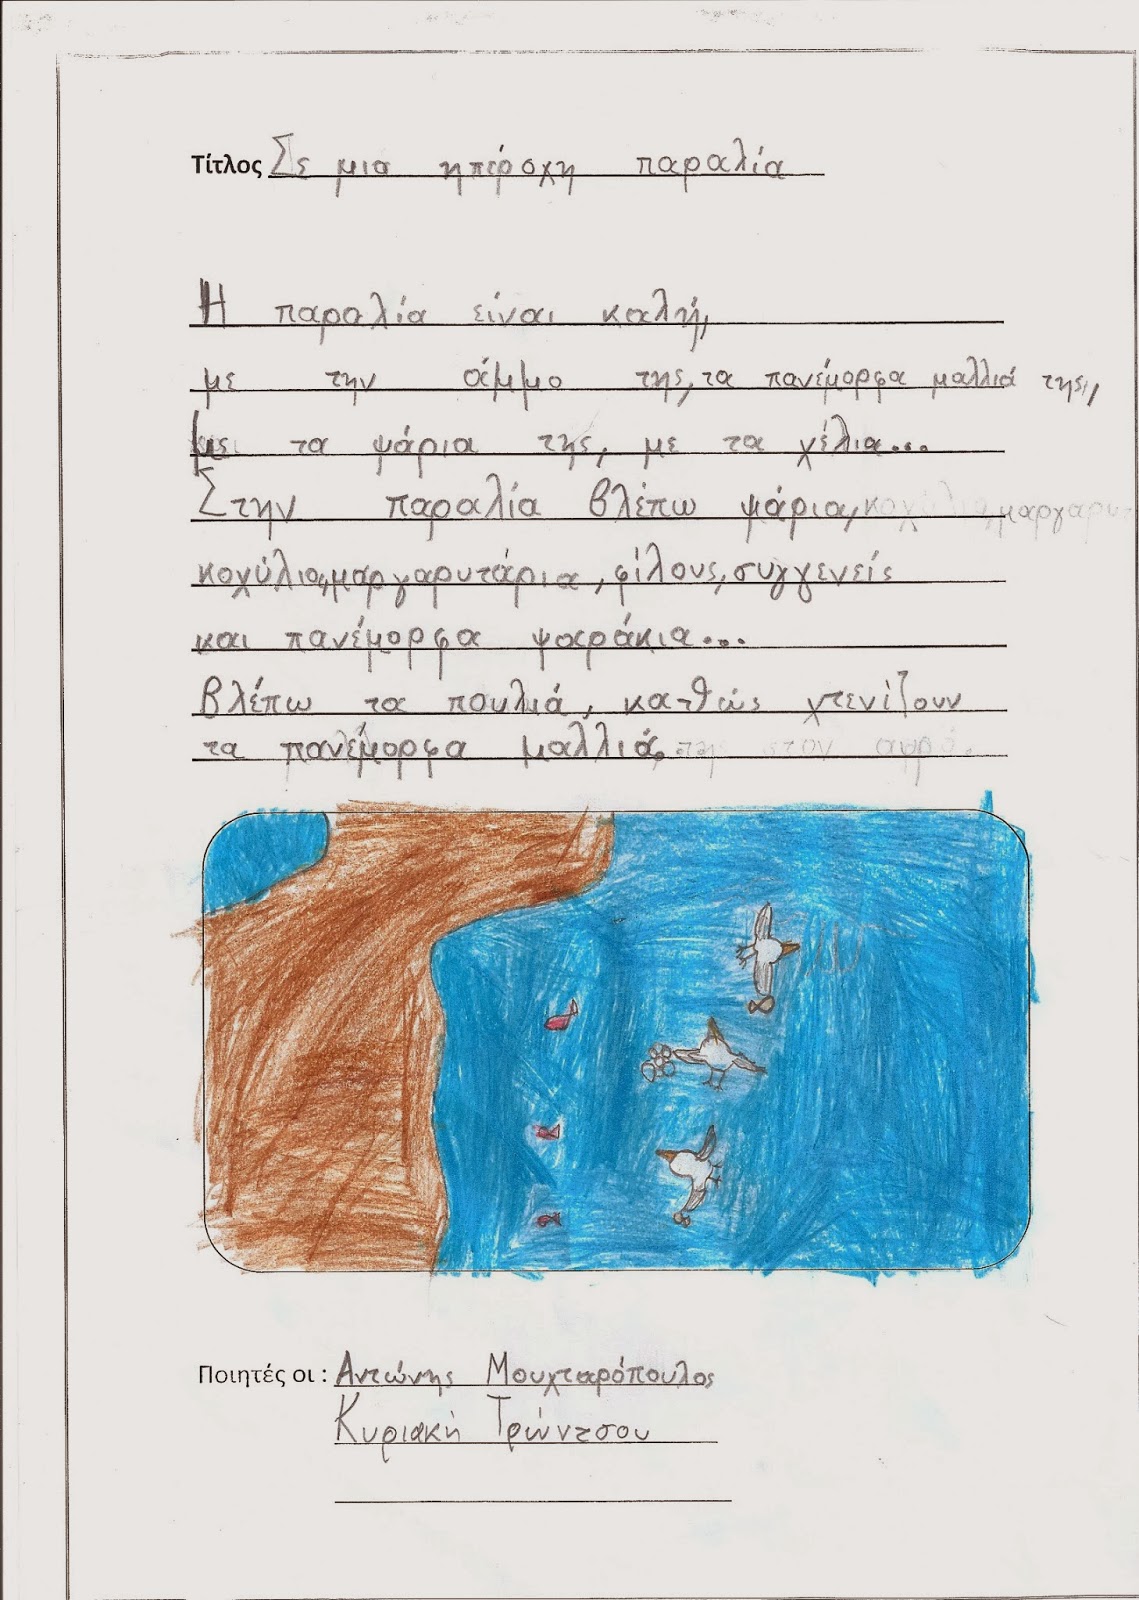 Τίτλος Σε μια ηπέροχη παραλία
Η παραλία είναι καλή,
με την άμμο της, τα πανέμορφα μαλλιά της,
με τα ψάρια της, με τα χέλια...
Στην παραλία βλέπω ψάρια, κοχύλια, μαργαρυτ
κοχύλια, μαργαρυτάρια, φίλους, συγγενείς
και πανέμορφα ψαράκια...
βλέπω τα πουλιά, καθώς χτενίζουν
τα πανέμορφα μαλλιά της στον αφρό.
Ποιητές οι : Αντώνης Μουχταρόπουλος
Κυριακή Τρώντσου